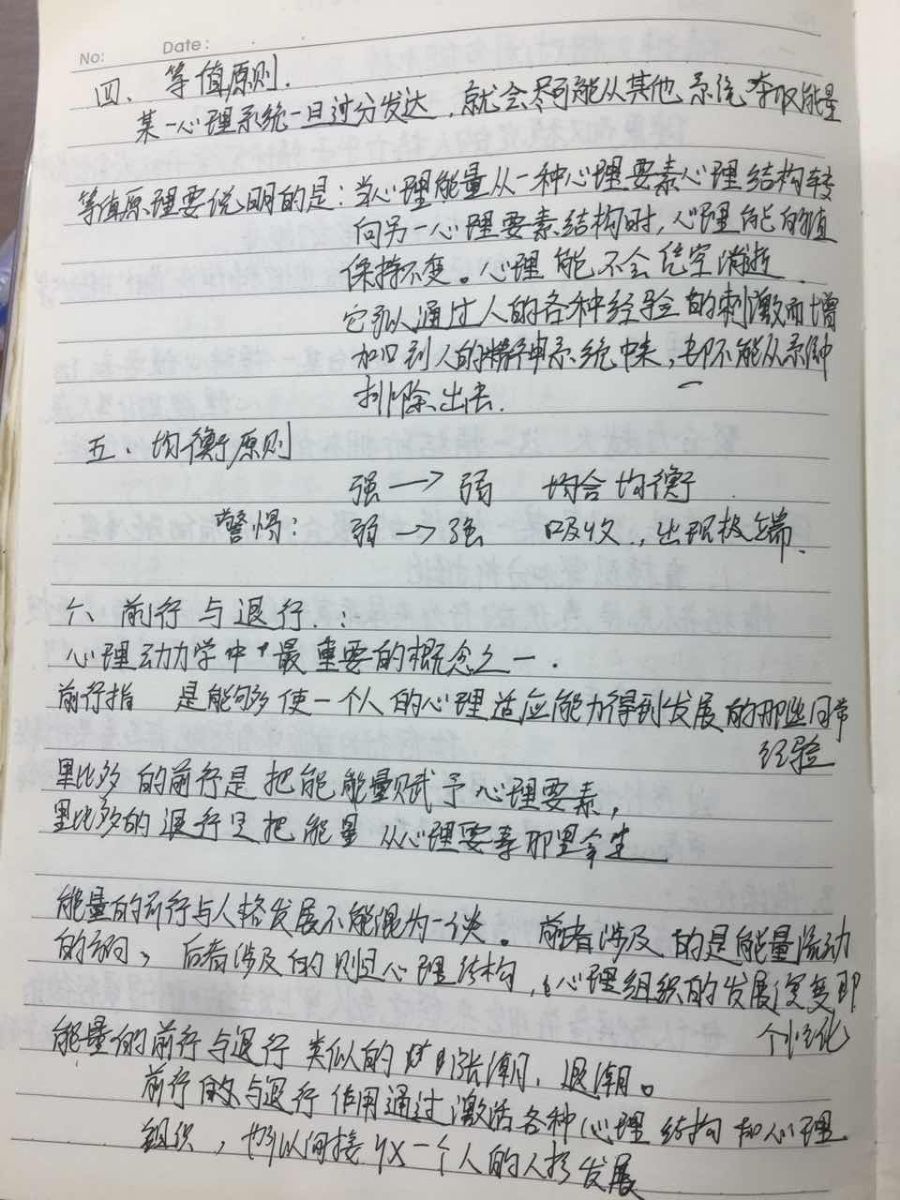 No:
Date:
四、等值原则.
某一心理系统一旦过分发达，就会尽可能从其他系统夺取能量
等值原理要说明的是：当心理能量从一种心理要素心理结构转
向另一心理要素结构时，心理能的值
保持不变。心理能不会凭空消逝
它可以通过人的各种经验的刺激而增
加到人的精神系统中来，却不能从系统中
排除出去.
五、均衡原则
强 → 弱 均合均衡
警惕： 弱 → 强 吸收，出现极端.
六、前行与退行.：
心理动力学中最重要的概念之一.
前行指 是能够使一个人的心理适应能力得到发展的那些日常
经验
里比多的前行是把能能量赋予心理要素，
里比多的退行是把能量从心理要素那里拿走
能量的前行与人格发展不能混为一谈。前者涉及的是能量流动
的方向、后者涉及的则是心理结构，心理组织的发展演变即
个性化
能量的前行与退行类似的时涨潮、退潮。
前行的与退行作用通过激活各种心理结构和心理
组织，可以间接 一个人的人格发展